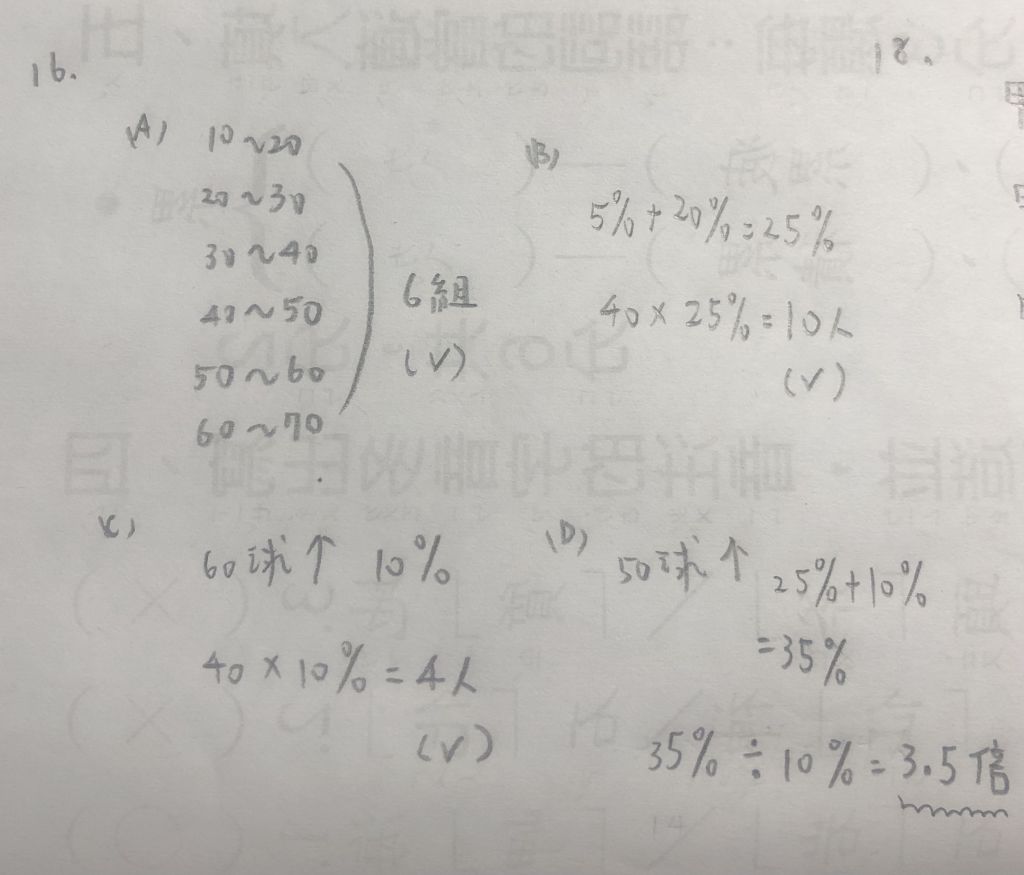 16.
(A) 10~20
20~30
30~40
40~50
50~60
60~70
6組
(✓)
(B)
5%+20%=25%
40×25%=10人
(✓)
(C)
60球↑ 10%
40×10%=4人
(✓)
(D)
50球↑ 25%+10%
=35%
35%÷10%=3.5倍
18.
甲